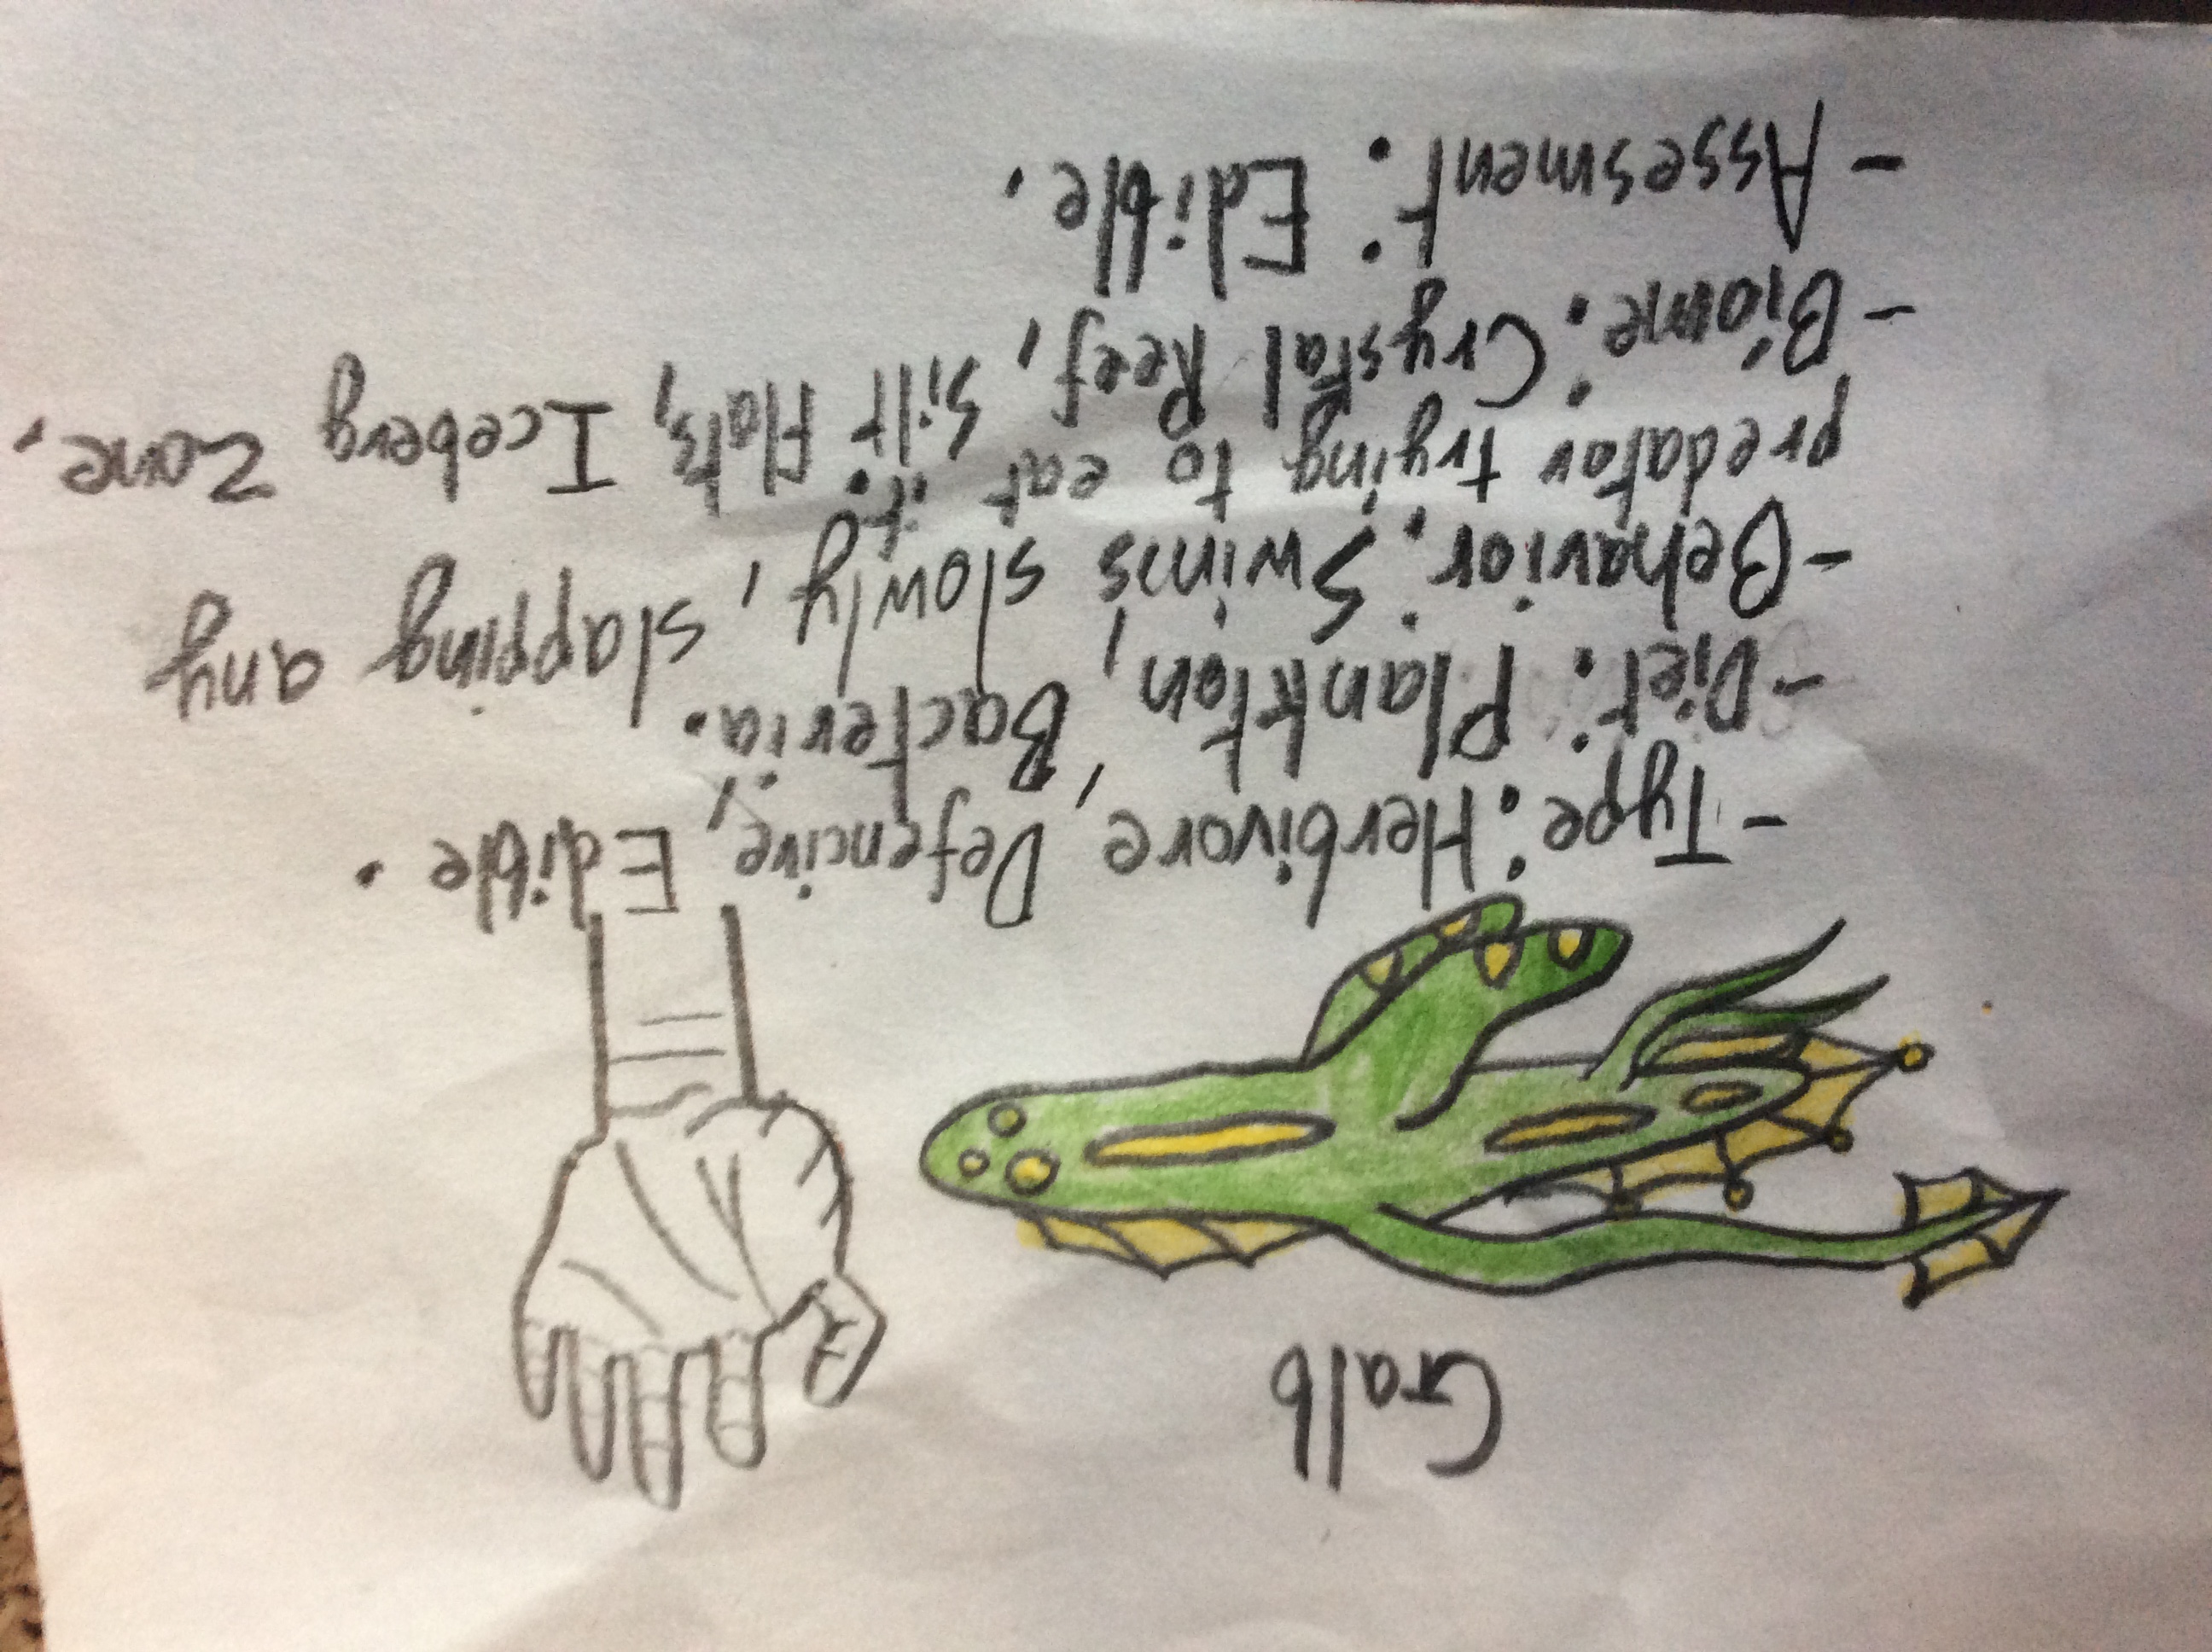 Galb
-Type: Herbivore, Defencive, Edible.
-Diet: Plankton, Bacteria.
-Behavior: Swims slowly, slapping any
predator trying to eat it.
-Biome: Crystal Reef, Silt Flats, Iceberg Zone.
-Assesment: Edible.